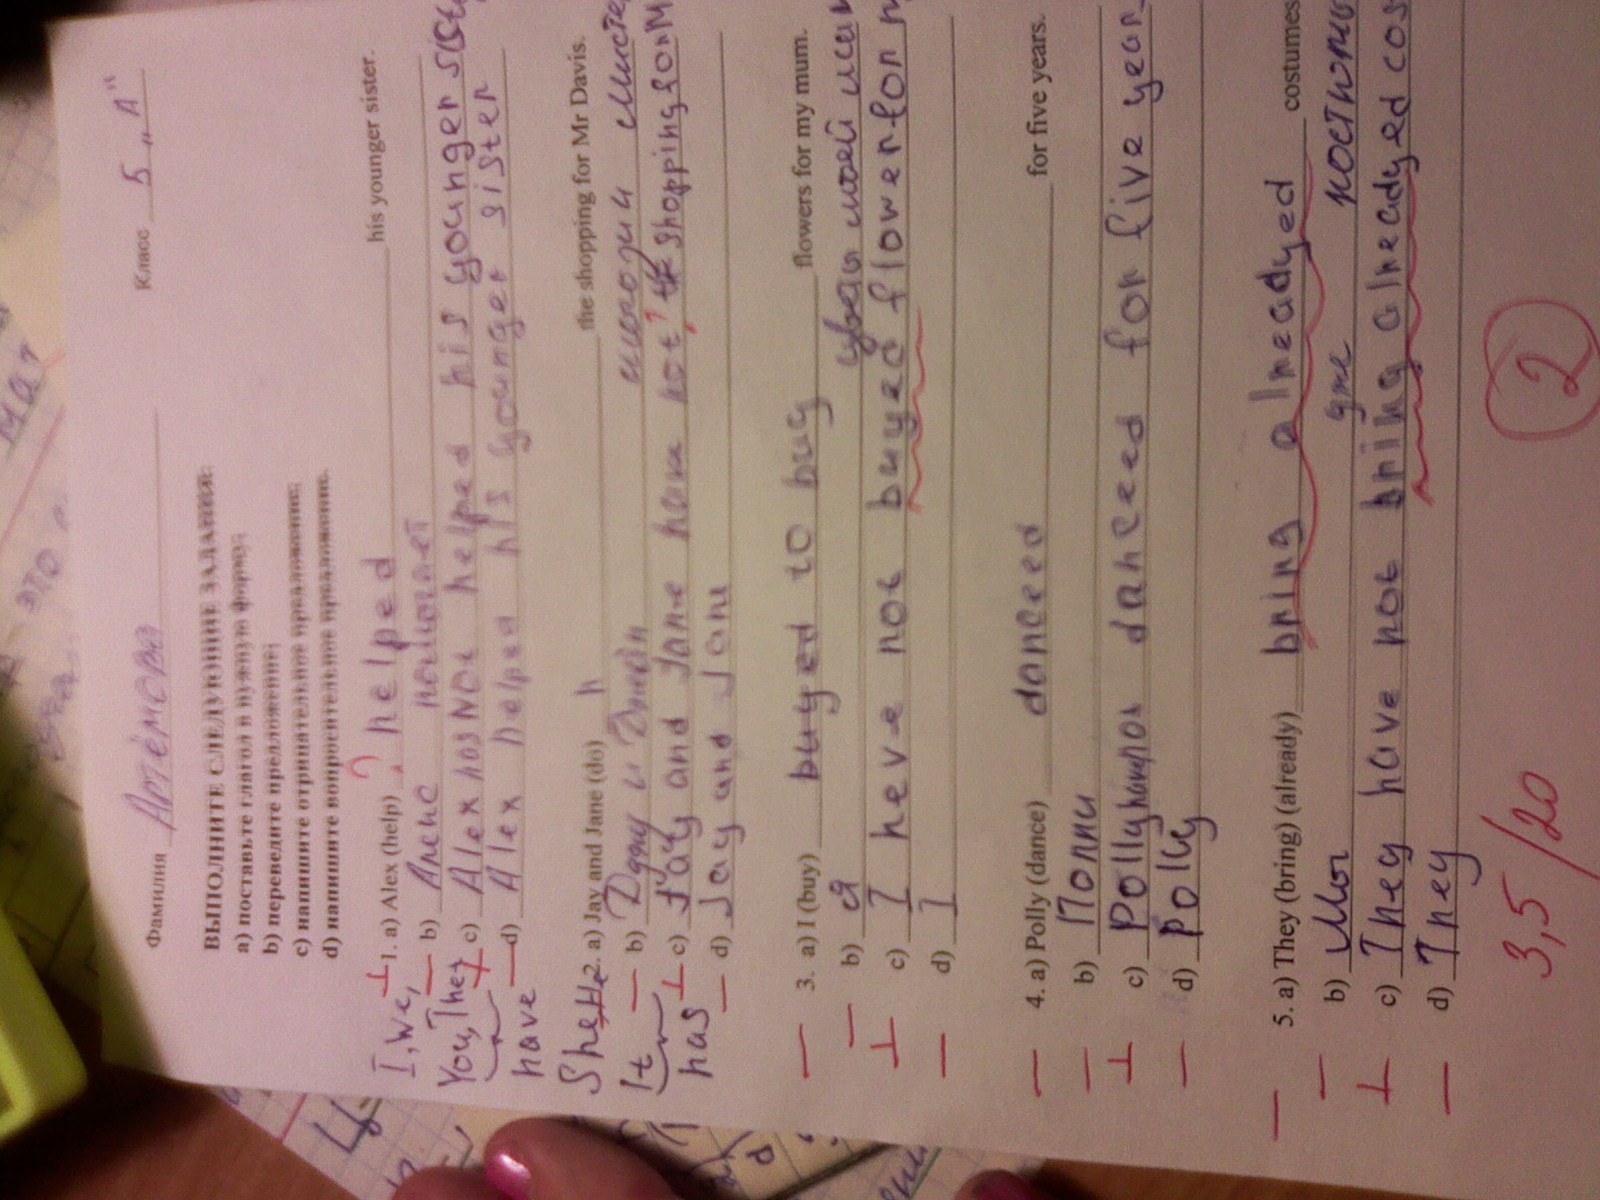 Фамилия Артёмова Класс 5 „А"
ВЫПОЛНИТЕ СЛЕДУЮЩИЕ ЗАДАНИЯ:
a) поставьте глагол в нужную форму;
b) переведите предложение;
c) напишите отрицательное предложение;
d) напишите вопросительное предложение.
1. a) Alex (help) ? helped his younger sister.
b) Алекс помогает
c) Alex has Not helped his younger siste
d) Alex helped his younger sister
I, We,
You, They
have
2. a) Jay and Jane (do) h the shopping for Mr Davis.
b) Джей и Джейн
c) Jay and Jane have not ? shopping for M
d) Jay and Jane
She
It
has
3. a) I (buy) buyed to buy flowers for my mum.
b) Я
c) I heve not buyed flower for m
d) I
4. a) Polly (dance) danceed for five years.
b) Полли
c) Polly not danceed for five year
d) Polly
5. a) They (bring) (already) bring alreadyed costumes
b) Мы уже костюмы
c) They have not bring alreadyed cos
d) They
3,5/20 2